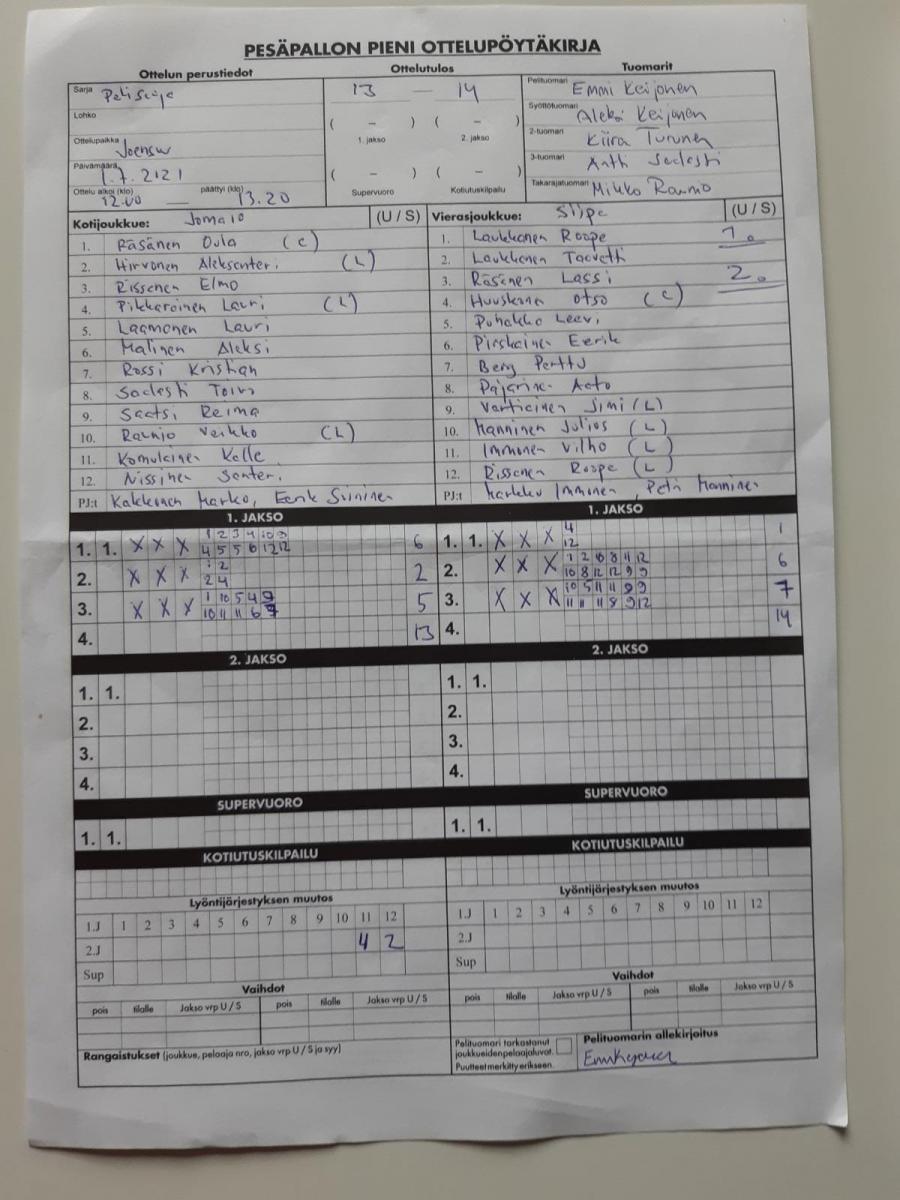 PESÄPALLON PIENI OTTELUPÖYTÄKIRJA
Ottelun perustiedot Ottelutulos Tuomarit
Sarja 13 — 14 Pelituomari Emmi Keijonen
Lohko ( – ) ( – ) Syöttötuomari Aleksi Keijonen
1. jakso 2. jakso
Ottelupaikka Joensuu 2-tuomari Kiira Turunen
Päivämäärä 1.7.2121 ( – ) ( – ) 3-tuomari Antti Sadesti
Ottelu alkoi (klo) 12.00 — päättyi (klo) 13.20 Supervuoro Kotiutuskilpailu Takarajatuomari Mikko Raunio
Kotijoukkue: (U / S) Vierasjoukkue: Siipe (U / S)
1. Räsänen Oula (C) 1. Laukkanen Roope 1.
2. Hirvonen Aleksanteri (L) 2. Laukkanen Taavetti
3. Rissanen Elmo 3. Räsänen Lassi 2.
4. Pikkarainen Lauri (L) 4. Huuskonen Otso (C)
5. Laamanen Lauri 5. Puhakko Leevi
6. Malinen Aleksi 6. Pirskainen Eerik
7. Rossi Kristian 7. Berg Perttu
8. Sadesti Toivo 8. Pajarinen Aato
9. Saatsi Reima 9. Vartiainen Simi (L)
10. Raunio Veikko (L) 10. Manninen Julios (L)
11. Komulainen Kalle 11. Immonen Vilho (L)
12. Nissinen Santeri 12. Rissanen Roope (L)
PJ:t Kakkonen Marko, Eerik Sininen PJ:t Markku Immonen, Petri Manninen
1. JAKSO 1. JAKSO
1 2 3 4 10 9 4
1. 1. X X X 4 5 5 6 12 12 6 1. 1. X X X 12 1
1 2 1 2 10 8 11 12
2. X X X 2 4 2 2. X X X 10 8 12 12 9 9 6
1 10 5 4 9 10 5 11 11 9 9
3. X X X 10 11 11 6 7 5 3. X X X 11 11 11 8 9 12 7
4. 13 4. 14
2. JAKSO 2. JAKSO
1. 1. 1. 1.
2. 2.
3. 3.
4. 4.
SUPERVUORO SUPERVUORO
1. 1. 1. 1.
KOTIUTUSKILPAILU KOTIUTUSKILPAILU
Lyöntijärjestyksen muutos Lyöntijärjestyksen muutos
1.J 1 2 3 4 5 6 7 8 9 10 11 12 1.J 1 2 3 4 5 6 7 8 9 10 11 12
2.J 4 2 2.J
Sup Sup
Vaihdot Vaihdot
pois tilalle Jakso vrp U / S pois tilalle Jakso vrp U / S pois tilalle Jakso vrp U / S pois tilalle Jakso vrp U / S
Rangaistukset (joukkue, pelaaja nro, jakso vrp U / S ja syy) Pelituomari tarkastanut Pelituomarin allekirjoitus
joukkueiden pelaajaluvat.
Puutteet merkitty erikseen.